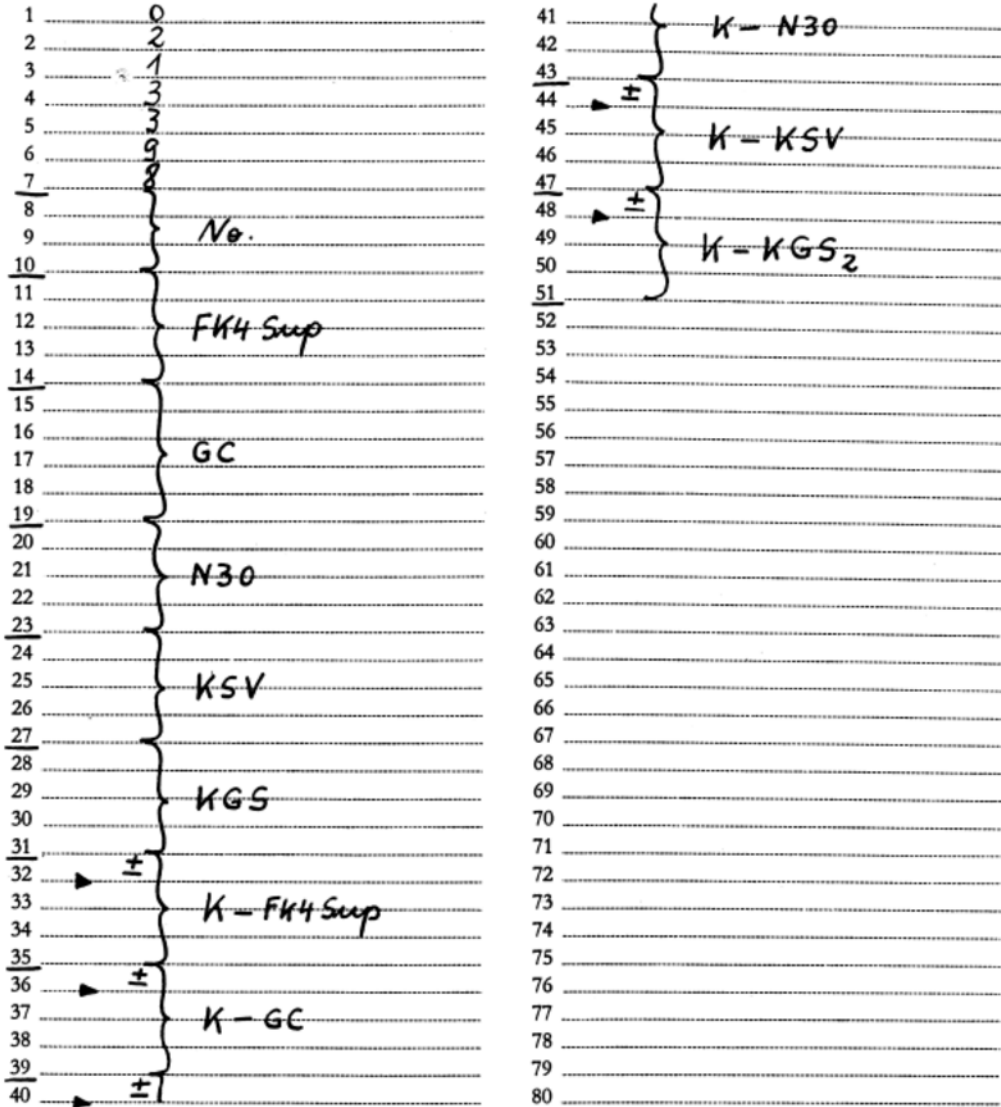 1 0
2 2
3 1
4 3
5 3
6 9
7 8
8
9 No.
10
11
12 FK4 Sup
13
14
15
16
17 GC
18
19
20
21 N30
22
23
24
25 KSV
26
27
28
29 KGS
30
31
32 ±
33 K - FK4 Sup
34
35
36 ±
37 K - GC
38
39
40 ±
41 K - N30
42
43
44 ±
45 K - KSV
46
47
48 ±
49 K - KGS2
50
51
52
53
54
55
56
57
58
59
60
61
62
63
64
65
66
67
68
69
70
71
72
73
74
75
76
77
78
79
80